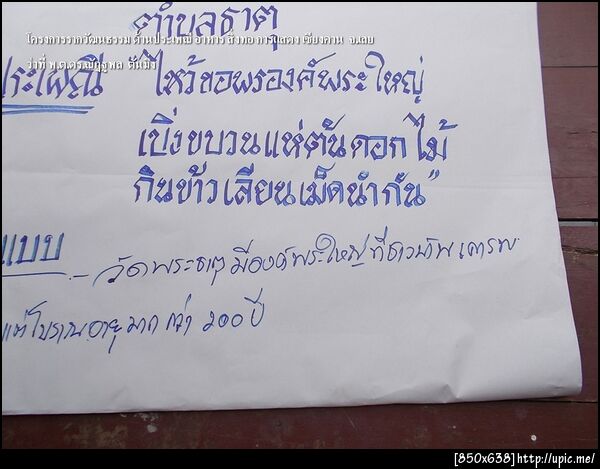 ตำบลธาตุ
โครงการรากวัฒนธรรม ด้านประเพณี อาหาร สิ่งทอ การแสดง เชียงคาน จ.เลย
ว่าที่ พ.ต.ดร.ณัฏฐพล ตันมิ่ง
ประเพณี "ไหว้ขอพรองค์พระใหญ่
เบิ่งขบวนแห่ต้นดอกไม้
กินข้าวเลียนเม็ดนำกัน"
แบบ - วัดพระธาตุมีองค์พระใหญ่ที่ชาวบ้านเคารพ
แต่โบราณอายุมากกว่า ๒๐๐ ปี
[850x638] http://upic.me/